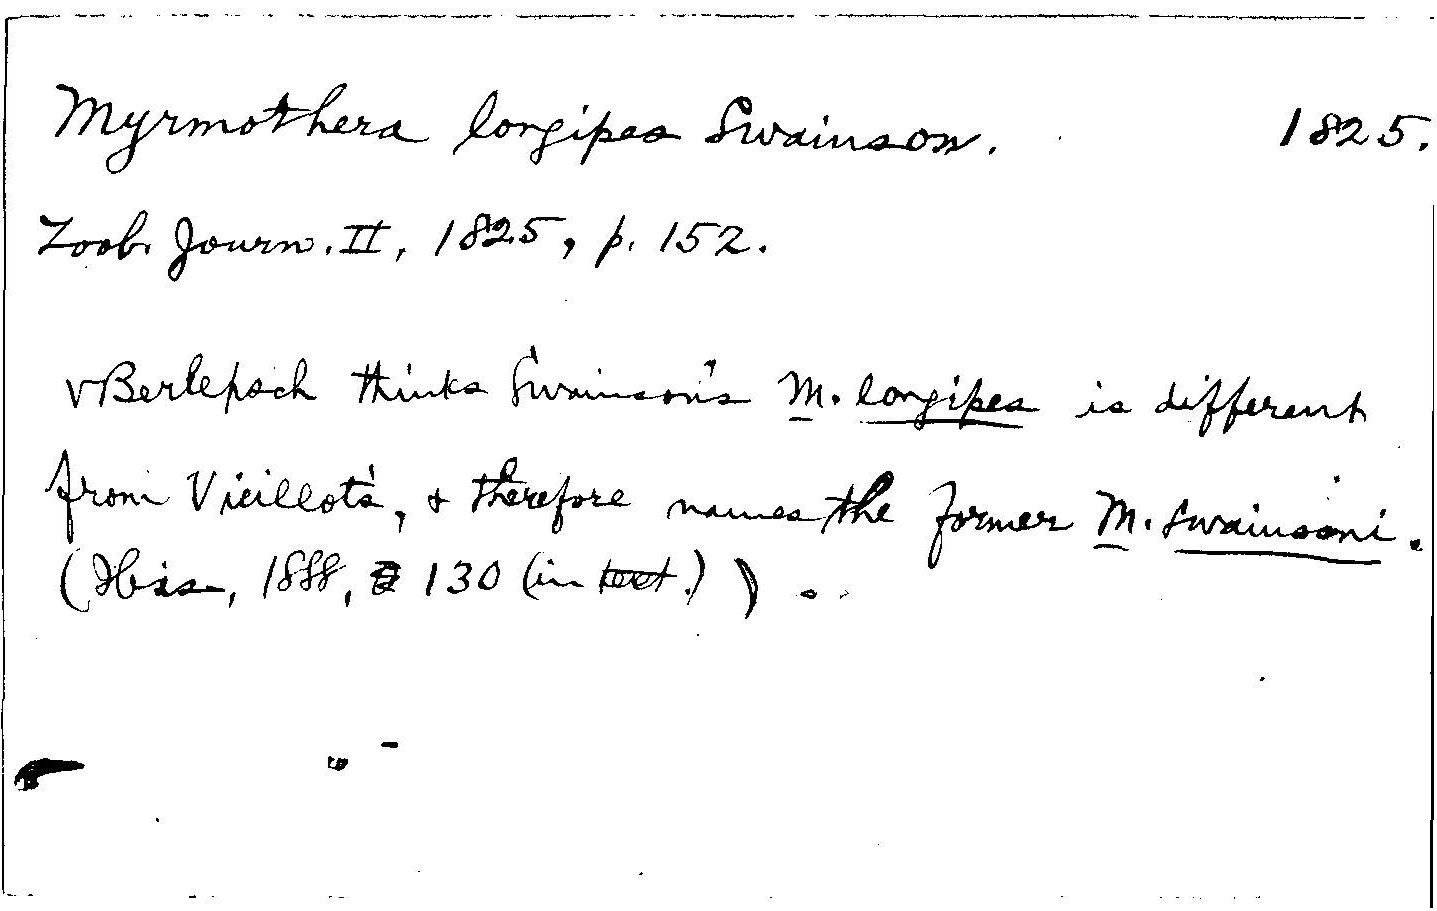 Myrmothera longipes Swainson. 1825.
Zool. Journ. II, 1825, p. 152.
vBerlepsch thinks Swainson's M. longipes is different
from Vieillot's, & therefore names the former M. swainsoni.
(Ibis, 1888, 130 (in text.)).